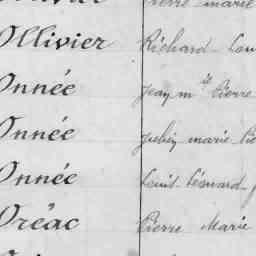 Pierre marie
Ollivier Richard Lou
Onnée Jean m ie Pierre
Onnée Julien marie Pie
Onnée Louis Léonard
Oréac Pierre Marie